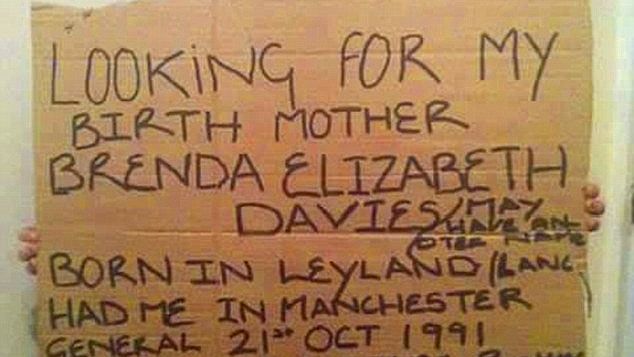 LOOKING FOR MY
BIRTH MOTHER
BRENDA ELIZABETH
DAVIES/MAY
HAVE AN
OTER NAME
BORN IN LEYLAND (LANC
HAD ME IN MANCHESTER
GENERAL 21st OCT 1991